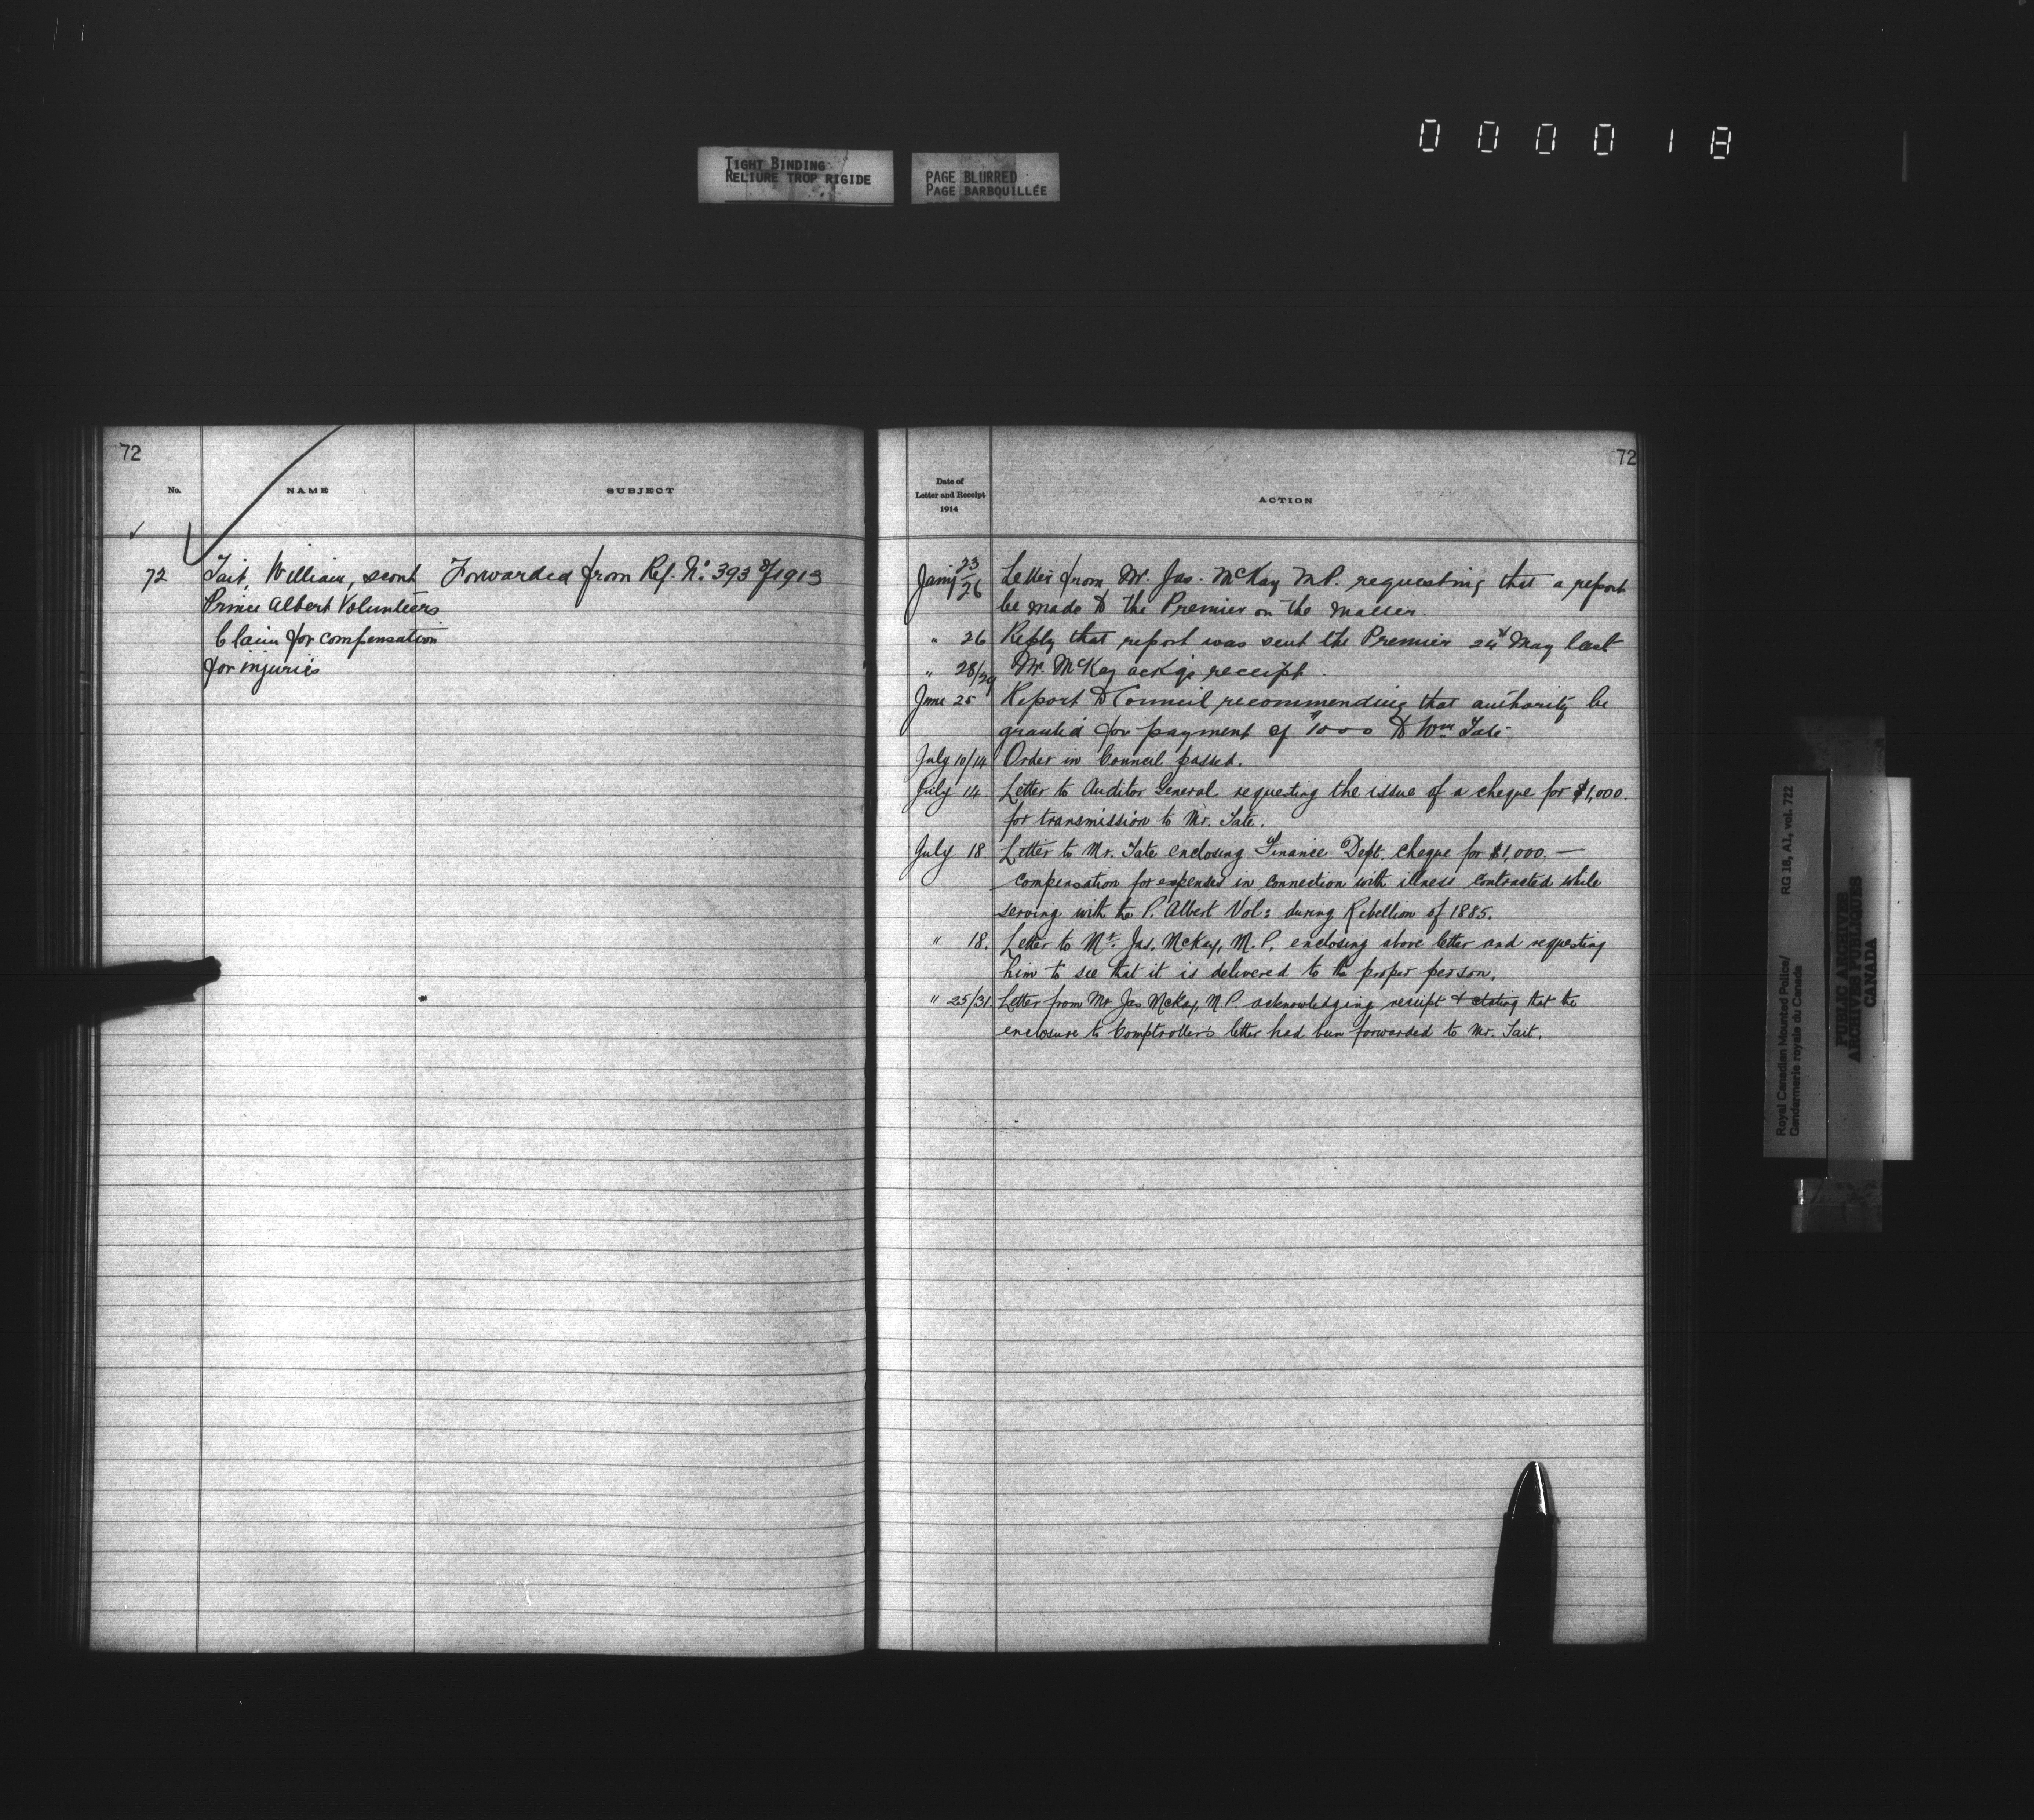 000018
TIGHT BINDING
RELIURE TROP RIGIDE
PAGE BLURRED
PAGE BARBOUILLÉE
72
No. NAME SUBJECT
72 Tait, William, scout Forwarded from Ref. No. 393 of 1913
Prince Albert Volunteers
Claim for compensation
for injuries
72
Date of
Letter and Receipt
1914
ACTION
Jany 23/26 Letter from Mr. Jas. McKay M.P. requesting that a report
be made to the Premier on the matter.
" 26 Reply that report was sent the Premier 24th May last
" 28/29 Mr. McKay ackg's receipt.
June 25 Report to Council recommending that authority be
granted for payment of $1000 to Wm Tate.
July 10/14 Order in Council passed.
July 14 Letter to Auditor General requesting the issue of a cheque for $1,000.
for transmission to Mr. Tate.
July 18 Letter to Mr. Tate enclosing Finance Dept. cheque for $1,000. —
compensation for expenses in connection with illness contracted while
serving with the P. Albert Vol: during Rebellion of 1885.
" 18. Letter to Mr. Jas. McKay, M.P. enclosing above letter and requesting
him to see that it is delivered to the proper person.
" 25/31. Letter from Mr Jas McKay, M.P. acknowledging receipt & stating that the
enclosure to Comptrollers letter had been forwarded to Mr. Tait.
Royal Canadian Mounted Police/ RG 18, A1, vol. 722
Gendarmerie royale du Canada
PUBLIC ARCHIVES
ARCHIVES PUBLIQUES
CANADA